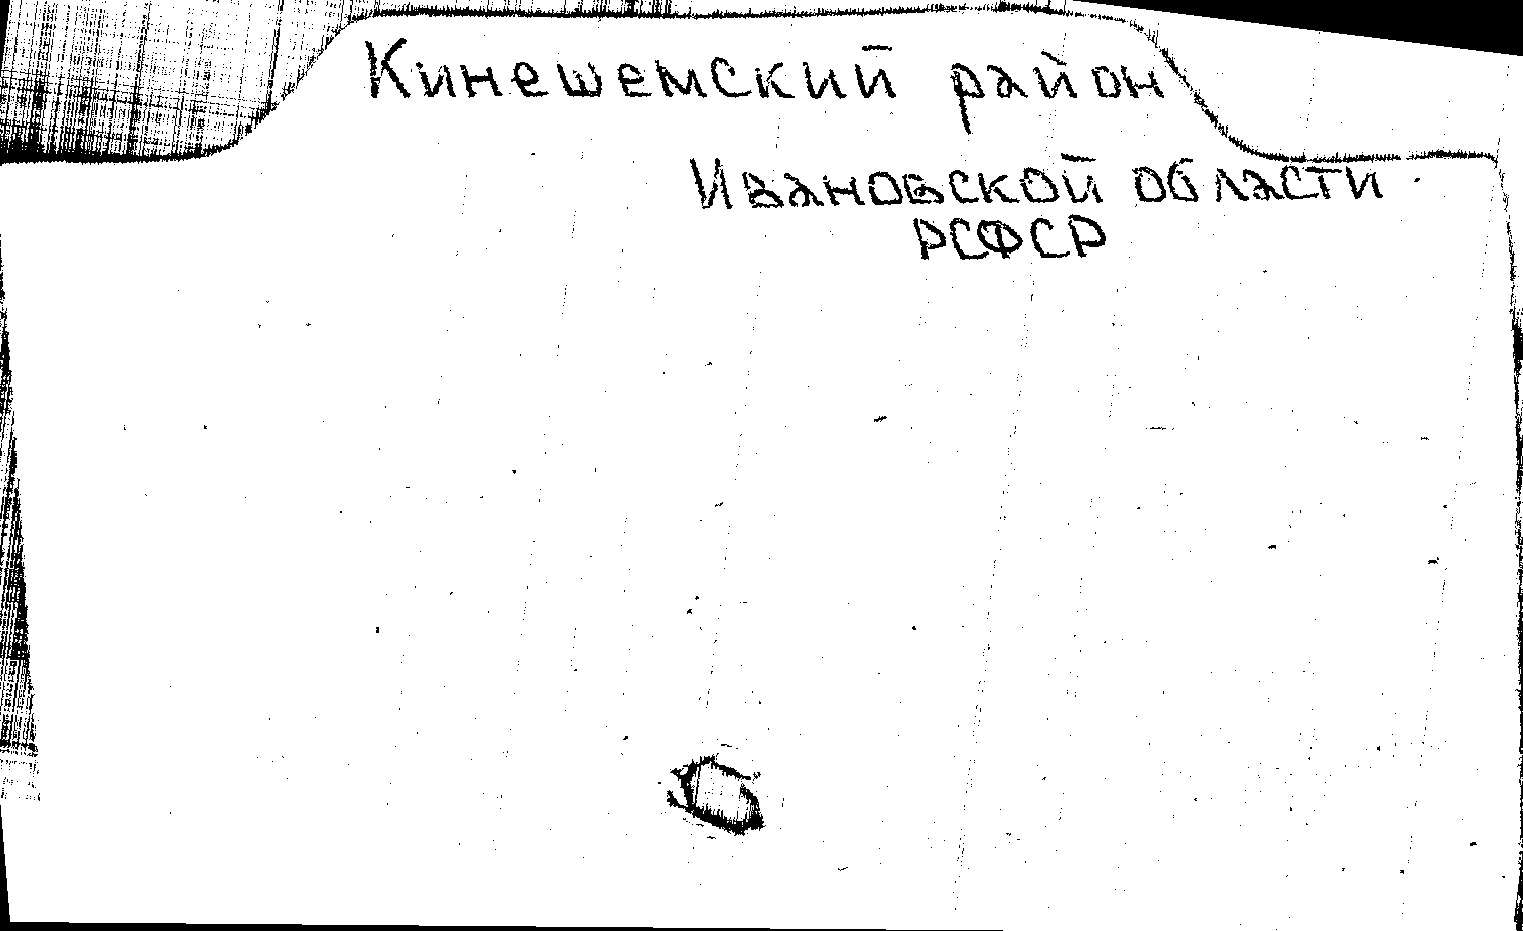 Кинешемский район
Ивановской области
РСФСР